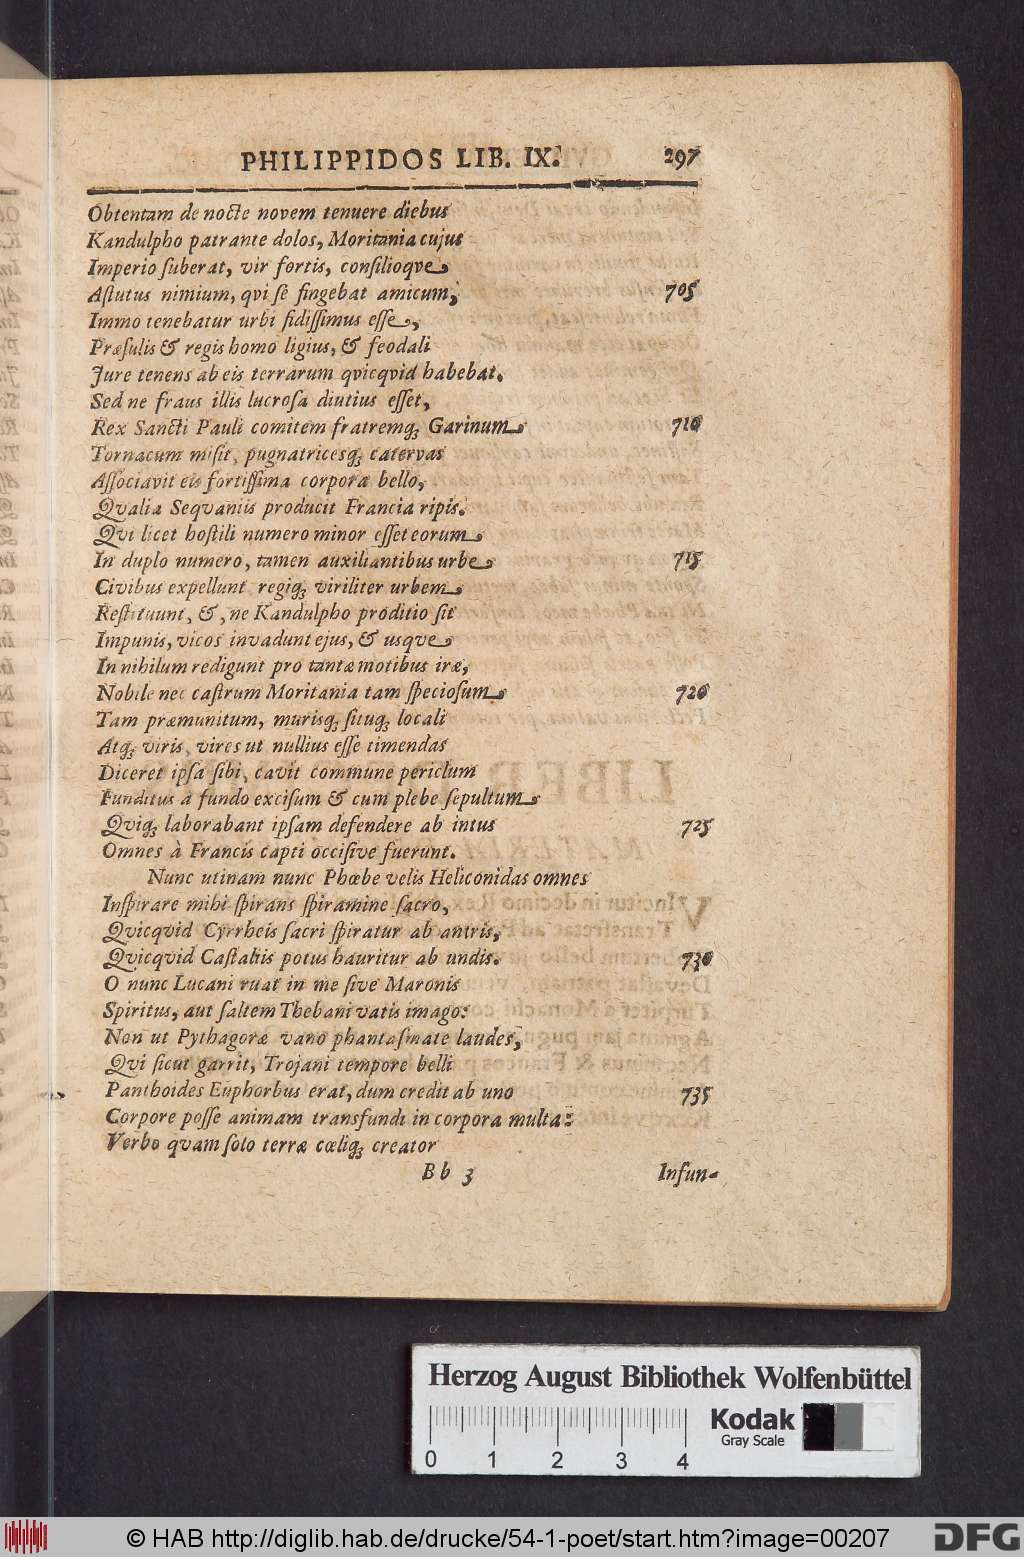 PHILIPPIDOS LIB. IX. 297
Obtentam de nocte novem tenuere diebus
Kandulpho patrante dolos, Moritania cujus
Imperio ſuberat, vir fortis, conſilioqve
Aſtutus nimium, qvi ſe fingebat amicum, 705
Immo tenebatur urbi fidiſſimus eſſe,
Præſulis & regis homo ligius, & feodali
Jure tenens ab eis terrarum qvicqvid habebat.
Sed ne fraus illis lucroſa diutius eſſet,
Rex Sancti Pauli comitem fratremq; Garinum 710
Tornacum miſit, pugnatricesq; catervas
Aſſociavit eis fortiſſima corpora bello,
Qvalia Seqvaniis producit Francia ripis.
Qvi licet hoſtili numero minor eſſet eorum
In duplo numero, tamen auxiliantibus urbe 715
Civibus expellunt, regiq; viriliter urbem
Reſtituunt, &, ne Kandulpho proditio ſit
Impunis, vicos invadunt ejus, & usqve
In nihilum redigunt pro tantæ motibus iræ,
Nobile nec caſtrum Moritania tam ſpecioſum 720
Tam præmunitum, murisq; ſituq; locali
Atq; viris, vires ut nullius eſſe timendas
Diceret ipſa ſibi, cavit commune periclum
Funditus a fundo exciſum & cum plebe ſepultum
Qviq; laborabant ipſam defendere ab intus 725
Omnes à Francis capti occiſive fuerunt.
Nunc utinam nunc Phœbe velis Heliconidas omnes
Inſpirare mihi ſpirans ſpiramine ſacro,
Qvicqvid Cyrrheis ſacri ſpiratur ab antris,
Qvicqvid Caſtaliis potus hauritur ab undis. 730
O nunc Lucani ruat in me ſive Maronis
Spiritus, aut ſaltem Thebani vatis imago:
Non ut Pythagoræ vano phantaſmate laudes,
Qvi ſicut garrit, Trojani tempore belli
Panthoides Euphorbus erat, dum credit ab uno 735
Corpore poſſe animam transfundi in corpora multa:
Verbo quam ſolo terræ cœliq; creator
Bb 3 Infun-
Herzog August Bibliothek Wolfenbüttel
Kodak
Gray Scale
0 1 2 3 4
© HAB http://diglib.hab.de/drucke/54-1-poet/start.htm?image=00207
DFG